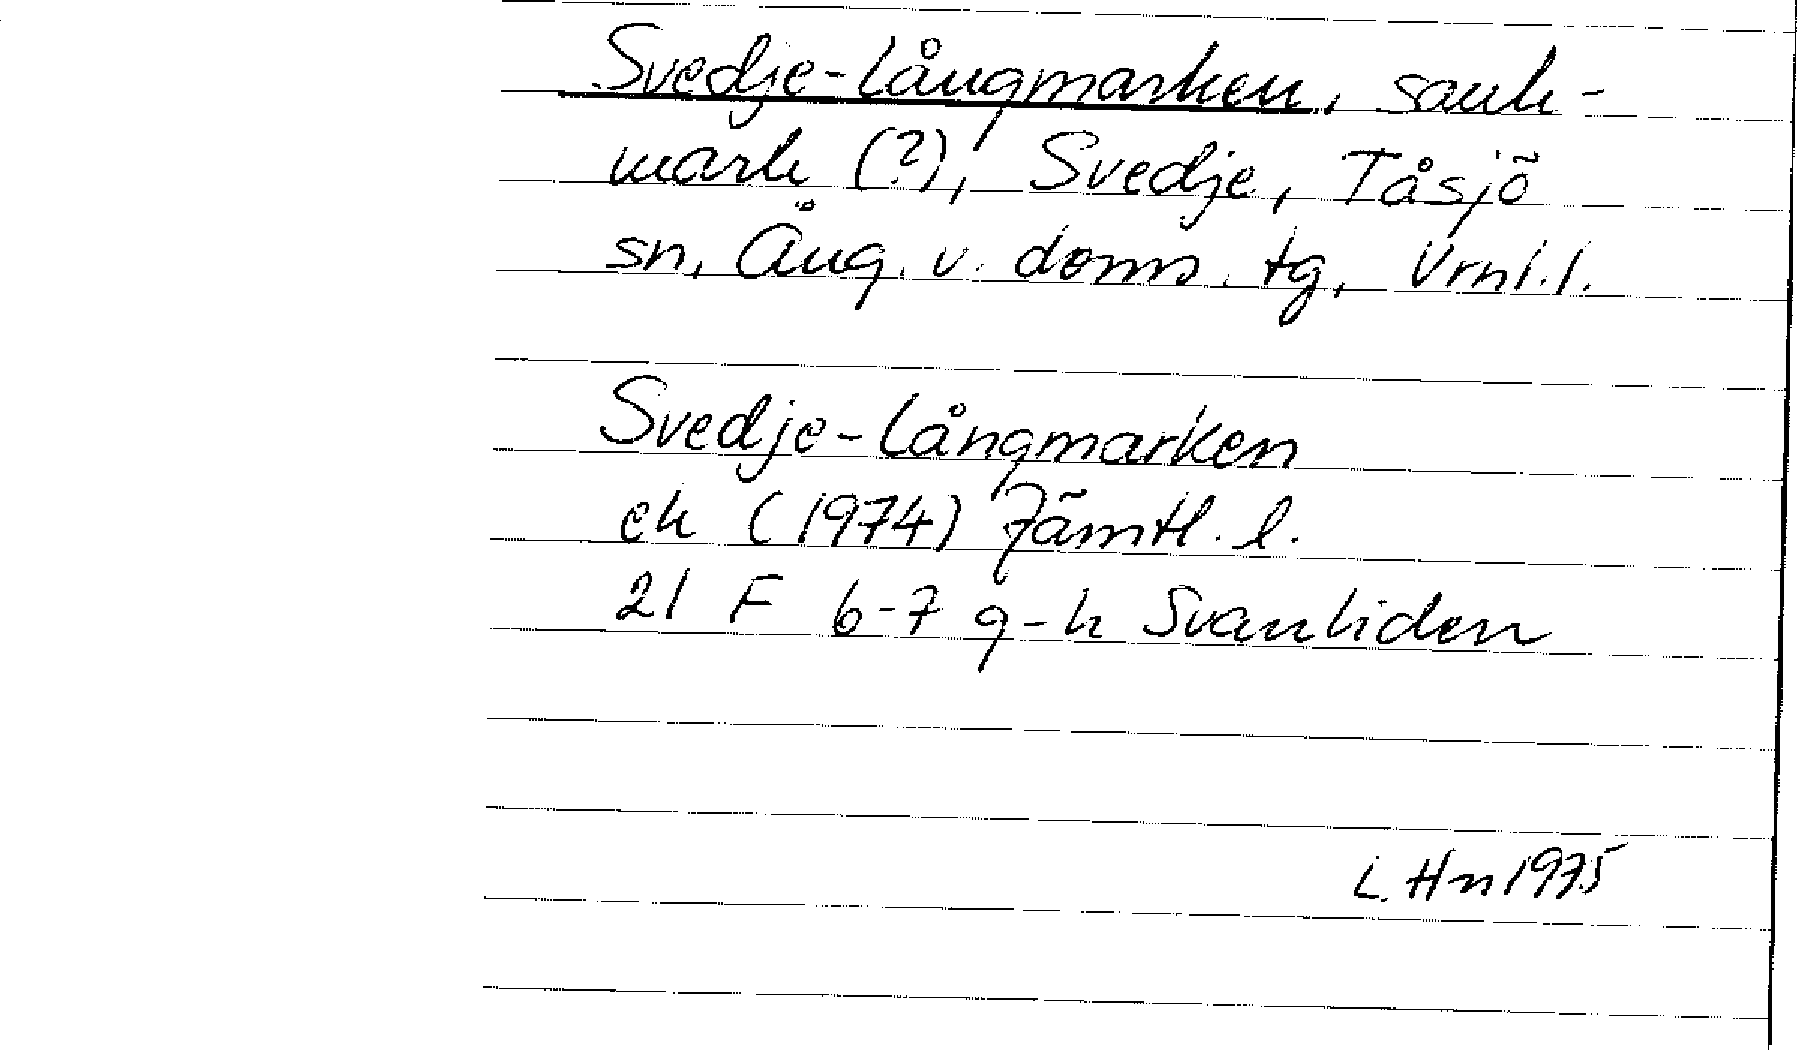 Svedje-Långmarken, sank-
mark (?), Svedje, Tåsjö
sn, Ång. v. doms. tg, Vrnl.l.
Svedje-Långmarken
ek (1974) Jämtl. l.
21 F 6-7 g-h Svanliden
L. Hn 1975